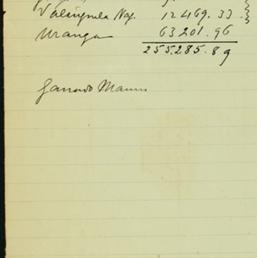 Valsequela Nag. 12469.33
Uranga 63201.96
255285.89
Ganado Manu